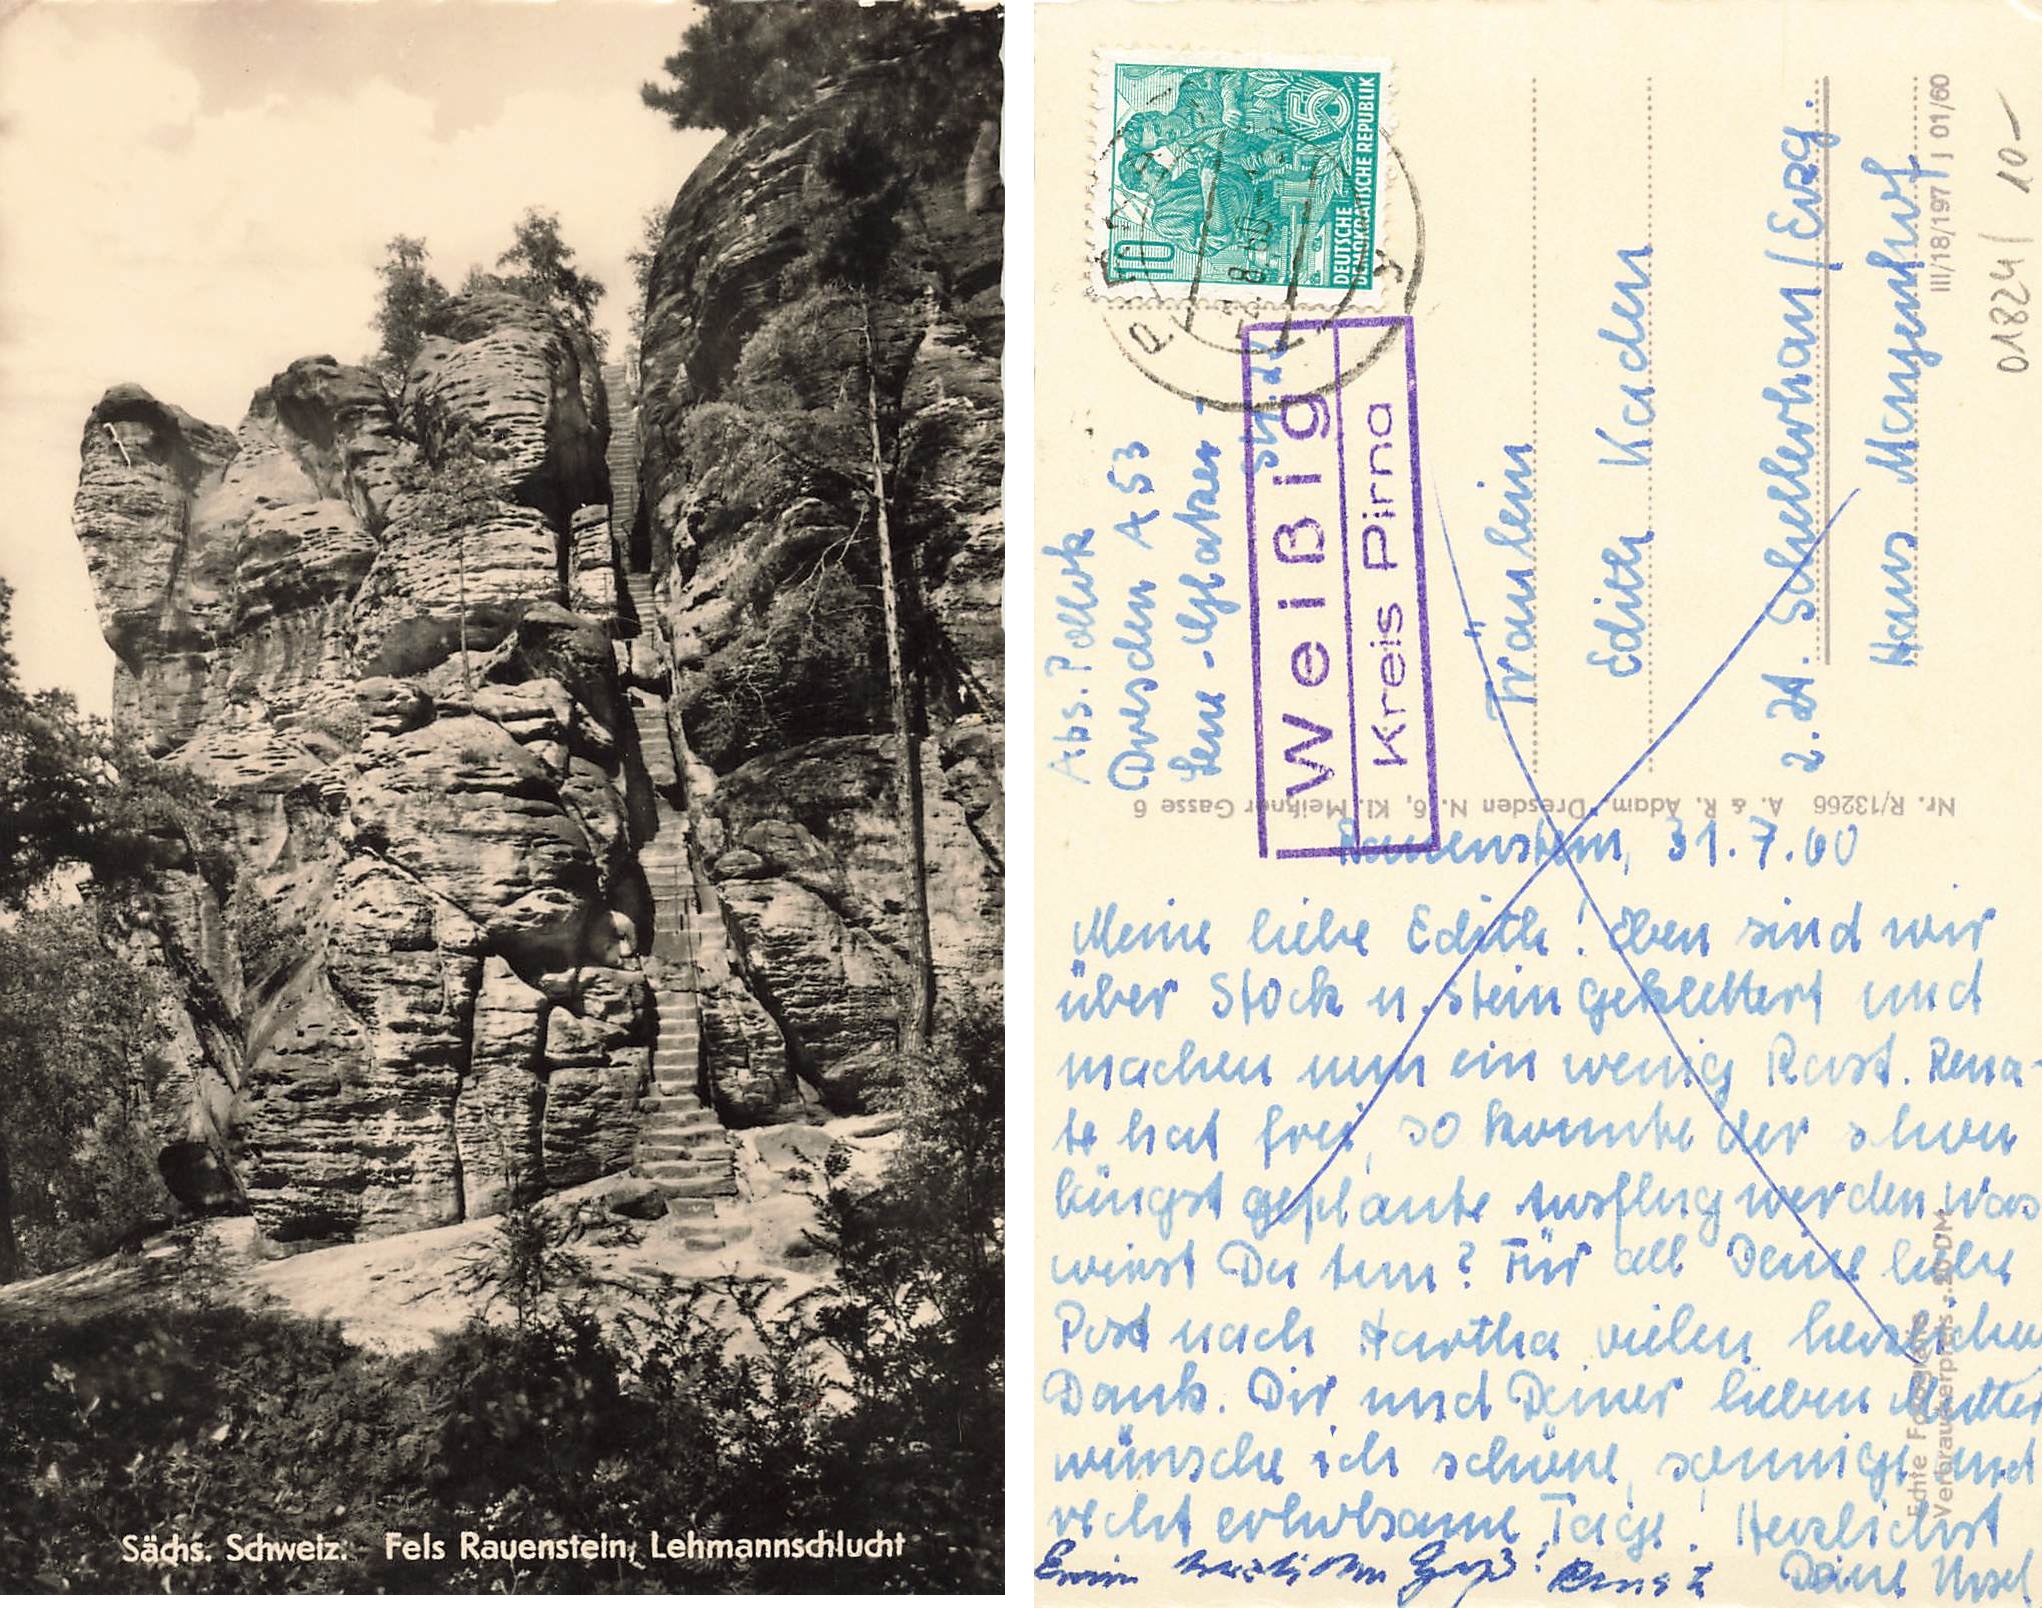 Sächs. Schweiz. Fels Rauenstein, Lehmannschlucht
10
DEUTSCHE
DEMOKRATISCHE REPUBLIK
5
Weißig
Kreis Pirna
Dresden A 53
Fräulein
Edith Kaden
2. 24. Schellerhau / Erzg.
Haus
III/18/197 J 01/60
01824/ 10-
Nr. R/13266 A. & R. Adam, Dresden N. 6, Kl. Meißner Gasse 6
Rauenstein, 31.7.60
Meine liebe Edith! Eben sind wir
über Stock u. Stein geklettert und
machen nun ein wenig Rast. Rena-
te hat frei, so konnte der schon
längst geplante Ausflug werden. Was
wirst Du tun? Für all Deine liebe
Post nach Hartha vielen herzlichen
Dank. Dir und Deiner lieben Mutter
wünsche ich schöne, sonnige und
recht erholsame Tage! Herzlichst
Deine Ursel
Echte Fotografie
Verbraucherpreis -.20 DM